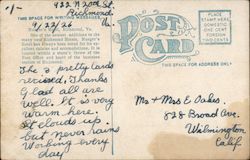 -/-
922 N 20th St.
Richmond
Va.
THIS SPACE FOR WRITING MESSAGES
9/22/26
Richmond, Va.
The 3 pretty Cards
recieved, Thanks
Glad all are
well. It is very
warm here.
It clouds up.
but never rains
Working every
day
POST
CARD
THIS SPACE FOR ADDRESS ONLY
PLACE
STAMP HERE
DOMESTIC
ONE CENT
FOREIGN
TWO CENTS
Mr + Mrs E Oakes.
828 Broad Ave.
Wilmington
Calif